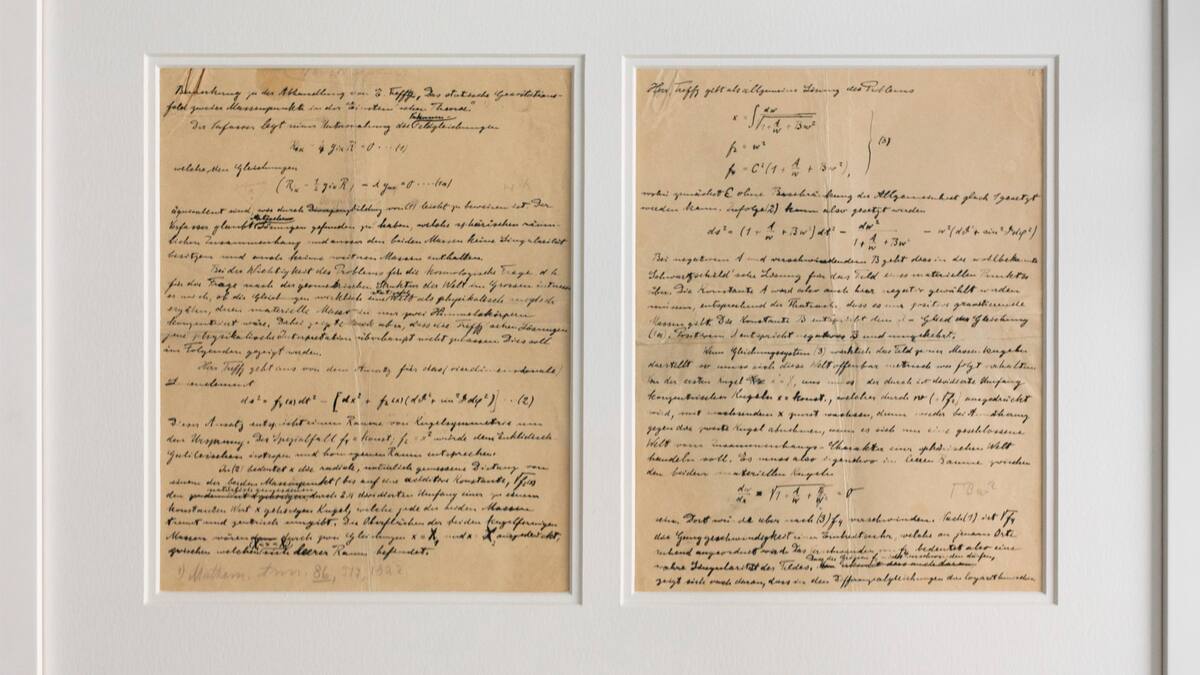 Bemerkung zu der Abhandlung von E. Trefftz „Das statische Gravitations-
feld zweier Massenpunkte in der Einsteinschen Theorie."
Der Verfasser legt seiner Untersuchung die Feldgleichungen
R_{ik} - ¼ g_{ik} R = 0 ....(1)
welche den Gleichungen
(R_{ik} - ½ g_{ik} R) - λ g_{ik} = 0 ....(1a)
äquivalent sind, wie durch Divergenzbildung von (1) leicht zu beweisen ist. Der
Verfasser glaubt Lösungen gefunden zu haben, welche sphärischen räum-
lichen Zusammenhang und ausser den beiden Massen keine Singularität
besitzen und auch keine weiteren Massen enthalten.
Bei der Wichtigkeit des Problems für die kosmologische Frage d. h.
für die Frage nach der geometrischen Struktur der Welt im Grossen
es mich, ob die Gleichungen wirklich eine statische Welt als physikalische
deren materielle Masse in nur zwei Himmelskörpern
konzentriert wäre. Dabei zeigte sich aber, dass die Trefftz'schen Lösungen
jene physikalische Interpretation überhaupt nicht zulassen. Dies soll
im Folgenden gezeigt werden.
Herr Trefftz geht aus von dem Ansatz für das (vierdimensionale)
Linienelement
ds² = f₄(x) dt² - [dx² + f₂(x)(dϑ² + sin²ϑ dφ²)] ...(2)
Dieser Ansatz entspricht einem Raume von Kugelsymmetrie um
den Ursprung. Der Spezialfall f₄ = konst, f₂ = x² würde dem Euklidisch-
Galileischen isotropen und homogenen Raum entsprechen.
In (2) bedeutet x die radiale, natürlich gemessene Distanz von
einem der beiden Massenpunkte (bis auf eine additive Konstante), √f₂(x)
den durch 2π dividierten Umfang einer zu einem
konstanten Wert x gehörigen Kugel, welche jede der beiden Massen
trennt und zentrisch umgibt. Die Oberflächen der beiden kugelförmigen
Massen wären durch zwei Gleichungen x = X₁ und x = X₂ ausgedrückt,
zwischen welchen leerer Raum befindet.
1) Mathem. Ann. 86, 317, 1922
Herr Trefftz gibt als allgemeine Lösung des Problems
x = ∫ dw / √(1 + A/w + Bw²)
f₂ = w²
f₄ = C²(1 + A/w + Bw²),
(3)
wobei zunächst C ohne Beschränkung der Allgemeinheit gleich 1 gesetzt
werden kann. Infolge (2) kann also gesetzt werden
ds² = (1 + A/w + Bw²) dt² - dw² / (1 + A/w + Bw²) - w²(dϑ² + sin²ϑ dφ²)
Bei negativem A und verschwindendem B geht dies in die wohlbekannte
Schwarzschild'sche Lösung für das Feld eines materiellen Punktes
über. Die Konstante A wird also auch hier negativ gewählt werden
müssen, entsprechend der Thatsache, dass es nur positive gravitierende
Massen gibt. Die Konstante B entspricht dem λ-Glied der Gleichung
(1a). Positivem λ entspricht negatives B und umgekehrt.
Wenn Gleichungssystem (3) wirklich das Feld zweier Massen-Kugeln
darstellt so muss sich diese Welt offenbar metrisch wie folgt verhalten
Von der ersten Kugel muss der durch 2π dividierte Umfang
konzentrischer Kugeln x = konst., welcher durch w (√f₂) ausgedrückt
wird, mit wachsendem x zuerst wachsen, dann wieder bei Annäherung
gegen die zweite Kugel abnehmen, wenn es sich um eine geschlossene
Welt vom Zusammenhangs-Charakter einer sphärischen Welt
handeln soll. Es muss also irgendwo im leeren Raume zwischen
den beiden materiellen Kugeln
dw/dx = √(1 + A/w + Bw²) = 0
sein. Dort würde aber nach (3) f₄ verschwinden. ist √f₄
die Ganggeschwindigkeit einer Einheitsuhr, welche an jenem Orte
ruhend angeordnet wird. Das Verschwinden von f₄ bedeutet also eine
wahre Singularität des Feldes.
zeigt sich auch daran, dass in den Differenzialgleichungen das logarithmischen